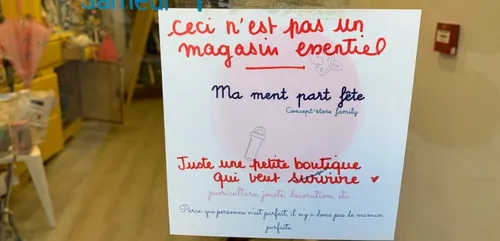 Samedi
Ceci n'est pas un
magasin essentiel
Ma ment part fête
Concept-store family
Juste une petite boutique
qui veut survivre ♥
puériculture, jouets, décoration, etc...
Parce que personne n'est parfait, il n'y a donc pas de maman
parfaite.